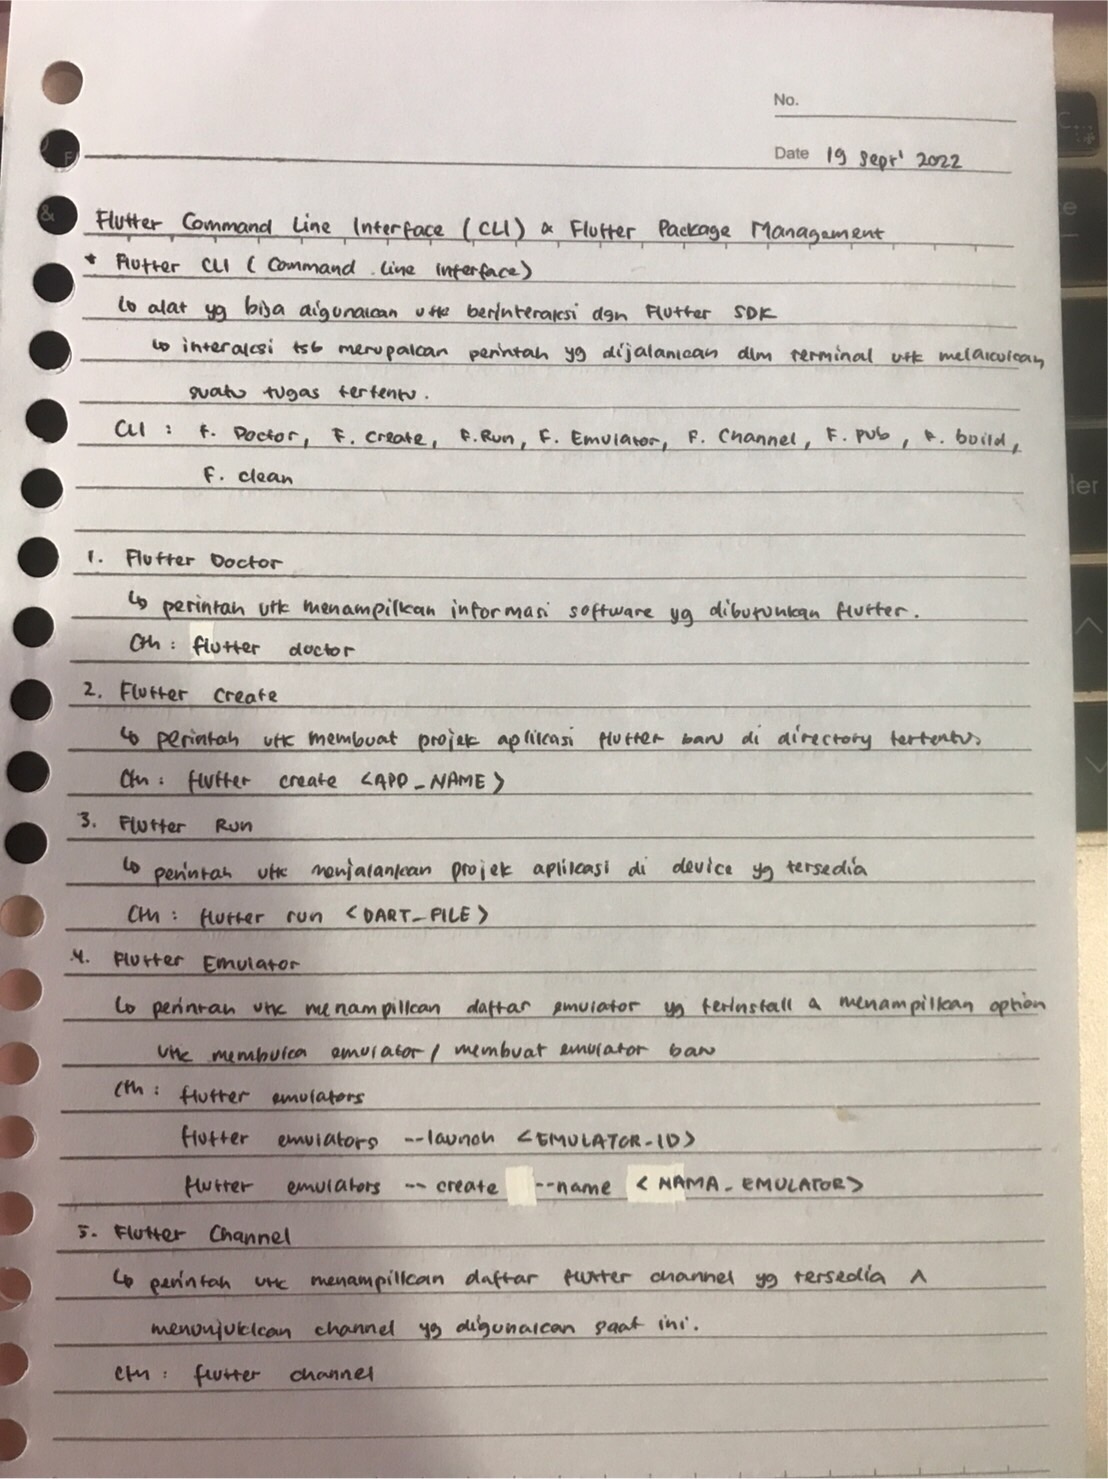 No.
Date 19 Sept' 2022
Flutter Command Line Interface (CLI) & Flutter Package Management
* Flutter CLI (Command Line Interface)
↳ alat yg bisa digunakan utk berinteraksi dgn Flutter SDK
↳ interaksi tsb merupakan perintah yg dijalankan dlm terminal utk melakukan
suatu tugas tertentu.
CLI : F. Doctor, F. Create, F. Run, F. Emulator, F. Channel, F. pub, F. build,
F. clean
1. Flutter Doctor
↳ perintah utk menampilkan informasi software yg dibutuhkan flutter.
Cth : flutter doctor
2. Flutter Create
↳ perintah utk membuat projek aplikasi flutter baru di directory tertentu.
Cth : flutter create <APP_NAME>
3. Flutter Run
↳ perintah utk menjalankan projek aplikasi di device yg tersedia
Cth : flutter run <DART_FILE>
4. Flutter Emulator
↳ perintah utk menampilkan daftar emulator yg terinstall & menampilkan option
utk membuka emulator / membuat emulator baru
Cth : flutter emulators
flutter emulators --launch <EMULATOR_ID>
flutter emulators --create --name <NAMA_EMULATOR>
5. Flutter Channel
↳ perintah utk menampilkan daftar flutter channel yg tersedia &
menunjukkan channel yg digunakan saat ini.
Cth : flutter channel